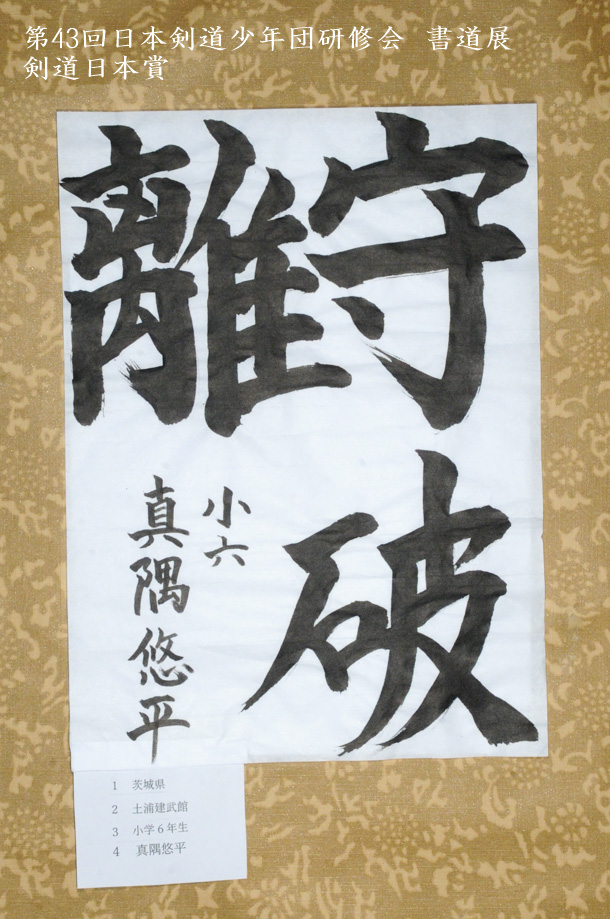 第43回日本剣道少年団研修会 書道展
剣道日本賞
守破
離
小六
真隅悠平
1 茨城県
2 土浦建武館
3 小学6年生
4 真隅悠平